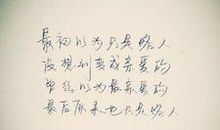 最初以为只是路人
没想到变成亲爱的
曾经以为最亲爱的
最后原来也只是路人